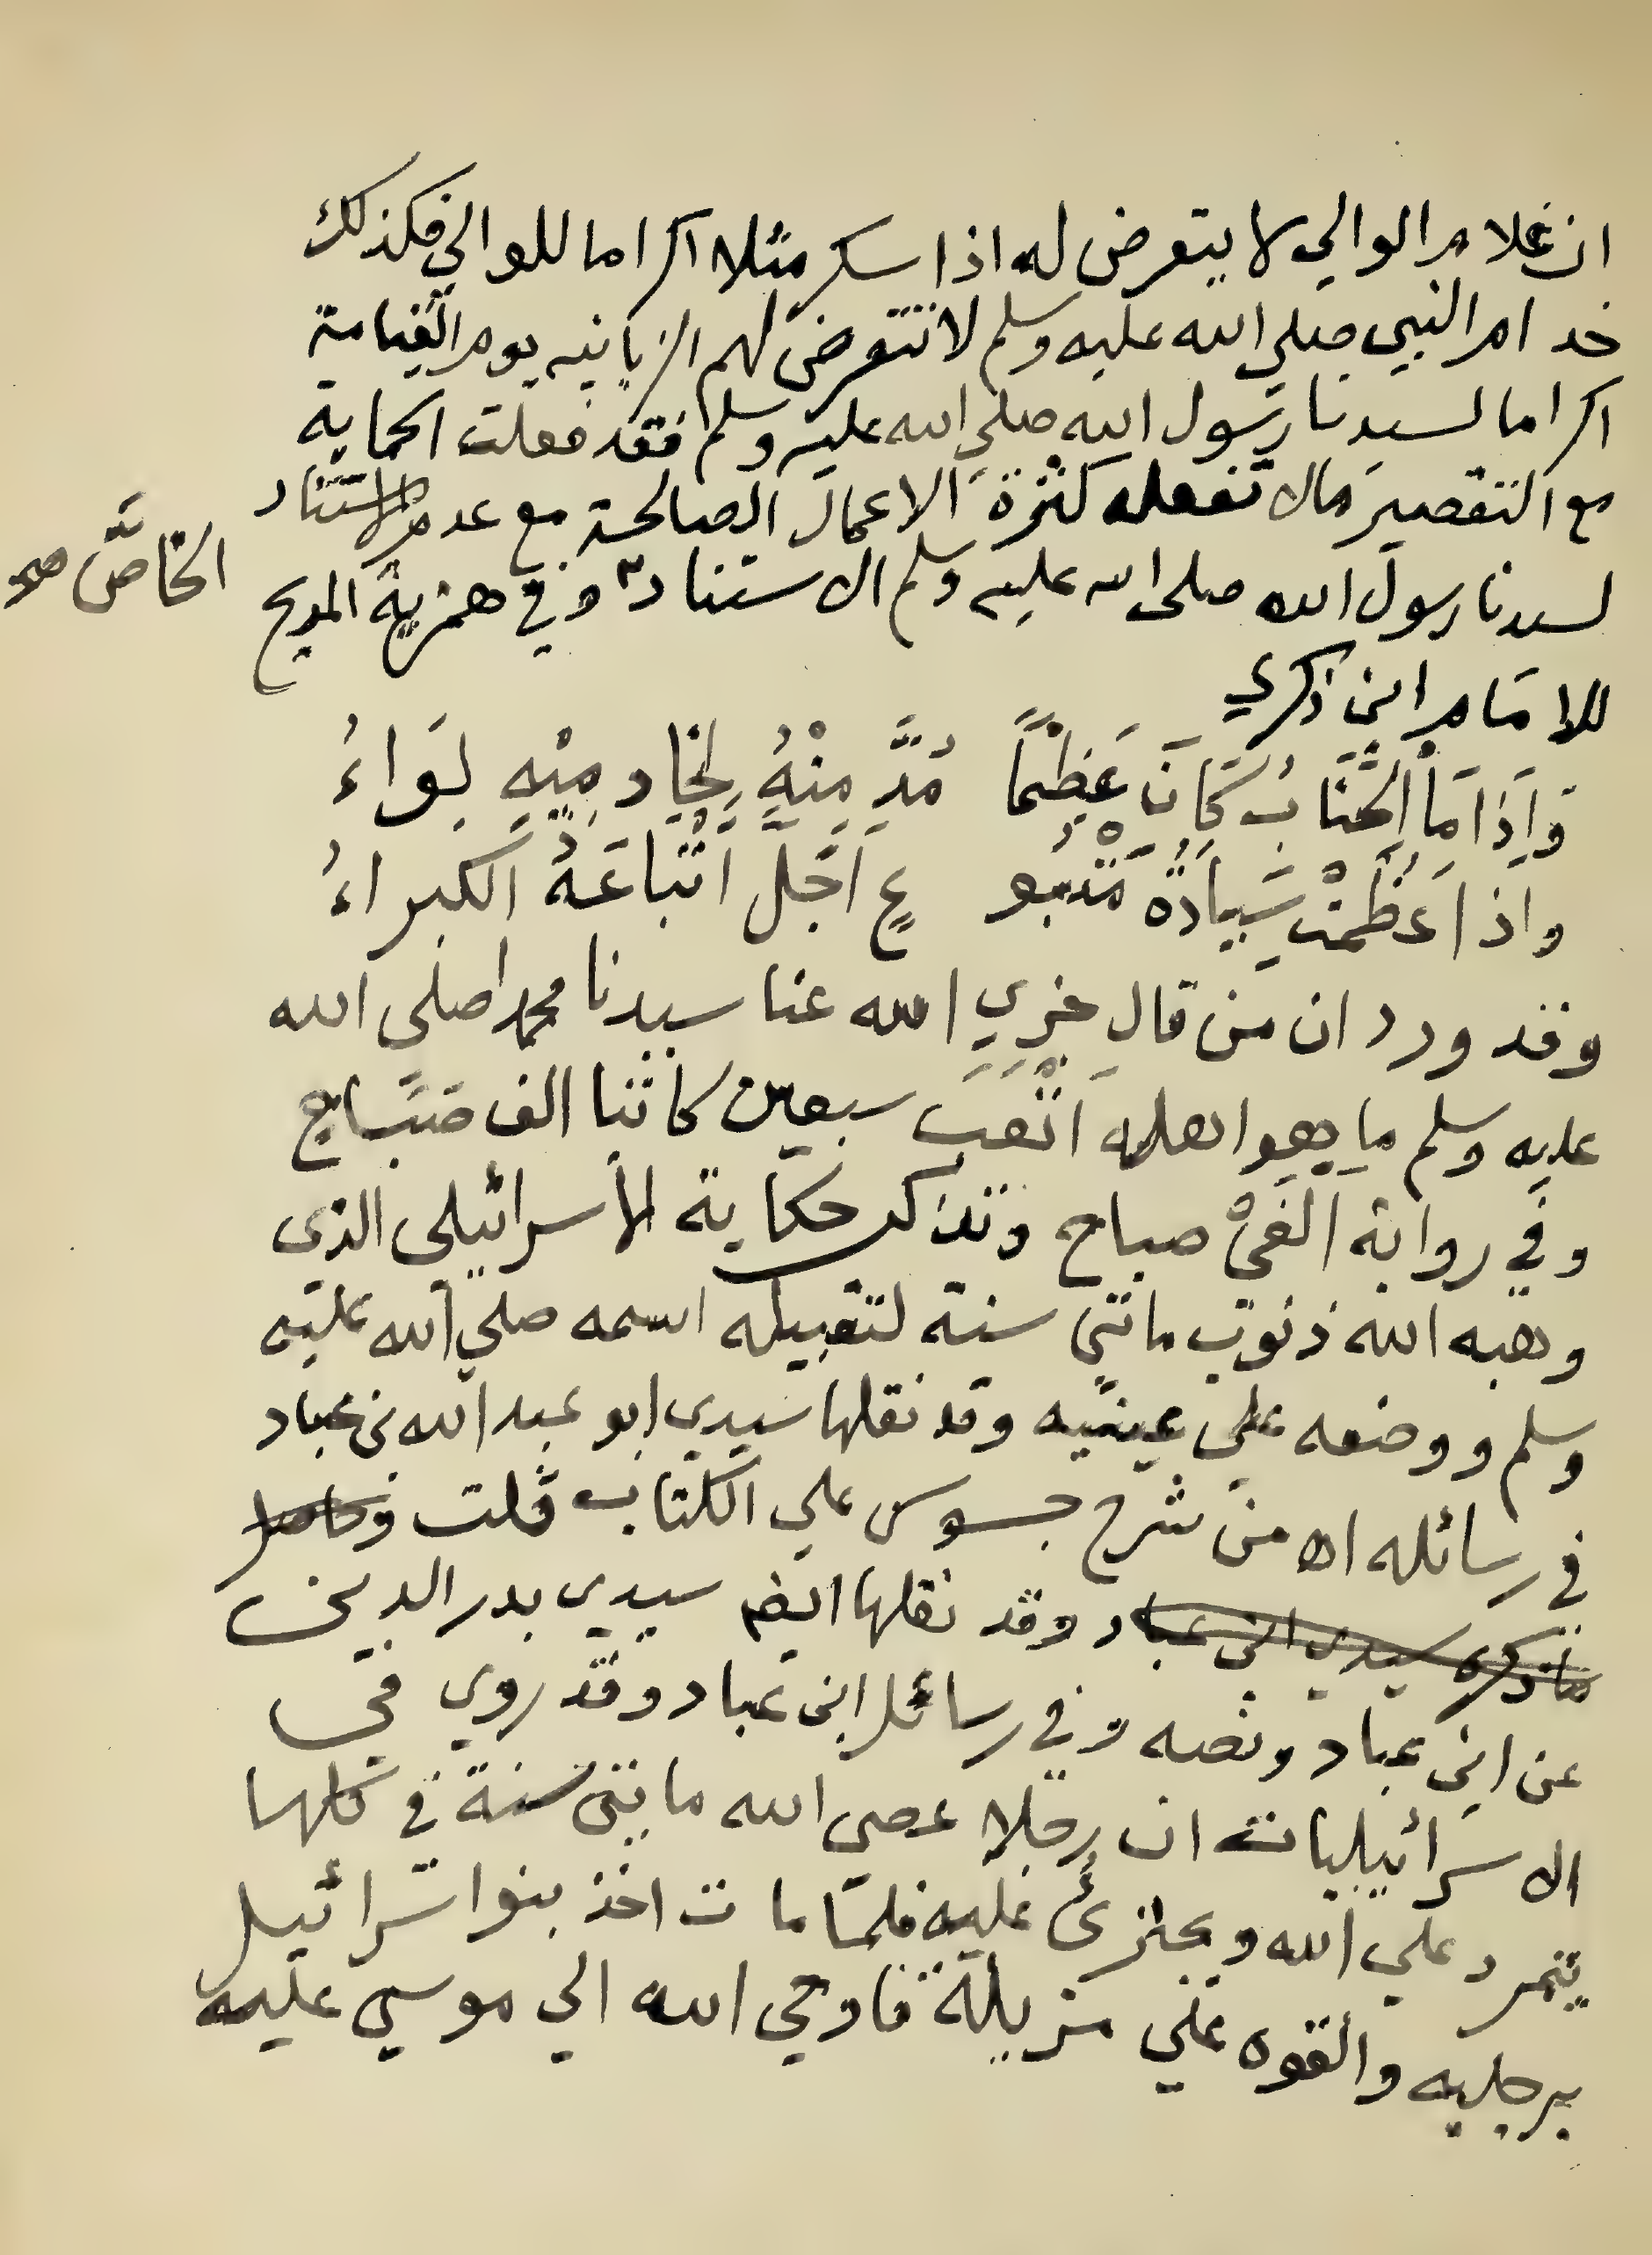 ان غلام الوالي لا يتعرض له اذا سكر مثلا اكراما للوالي فكذلك
خدام النبي صلى الله عليه وسلم لا تتعرض لهم الزبانيه يوم القيامة
اكراما لسيدنا رسول الله صلى الله عليه وسلم فقد فعلت الحماية
مع التقصير مالا تفعله كثرة الاعمال الصالحة مع عدم الاستناد
لسيدنا رسول الله صلى الله عليه وسلم الاستناد وفي همزية المديح
الخاصَّ صح
للامام ابن زكري
وَاِذَا مَا الجَنَابُ كَانَ عَظِيمًا مُدَّ مِنْهُ لِخَادِمِيْهِ لِوَاءُ
واذا عَظُمَتْ سِيَادَةُ مَتْبُو عٍ اَجَلَّ اَتْبَاعَهُ الكبراءُ
وقد ورد ان من قال جزي الله عنا سيدنا محمدا صلى الله
عليه وسلم ما هو اهله اَتْعَبَ سبعين كاتبا الف صباح
وفي رواية اَلْفَيْ صباح وتذكر حكاية الاسرائيلي الذي
وهبه الله ذنوب مائتي سنة لتقبيله اسمه صلى الله عليه
وسلم ووضعه على عينيه وقد نقلها سيدي ابو عبد الله بن عباد
في رسائله اه من شرح جسوس على الكتاب قلت وحاصل
ما ذكره سيدي ابن عباد وقد نقلها ايضا سيدي بدر الدين
عن ابن عباد ونصه وفي رسائل ابن عباد وقد روي في
الاسرائيليات ان رجلا عصى الله مايتى سنة في كلها
يتمرد على الله ويجترئ عليه فلما مات اخذ بنوا اسرائيل
برجليه والقوه على مزبلة فاوحى الله الى موسى عليه